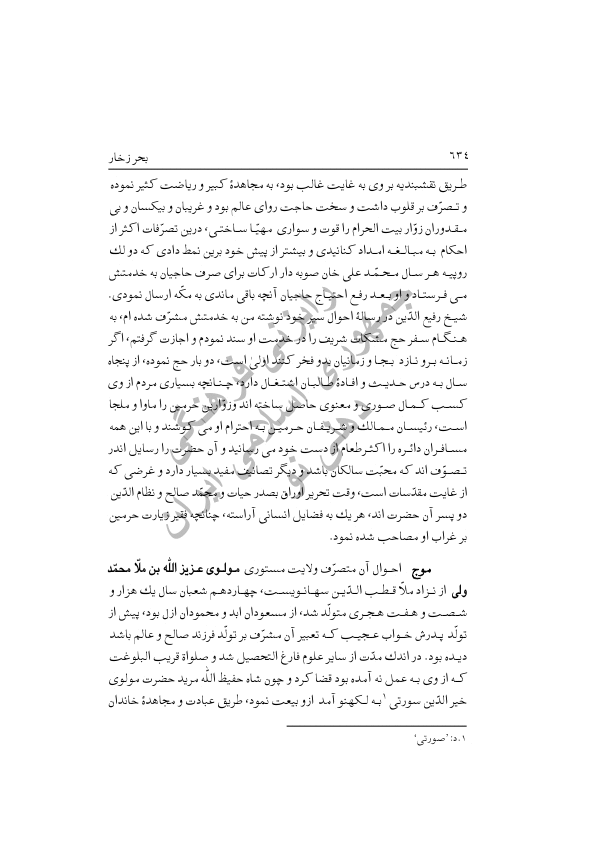 ٦٣٤
بحر زخار
طریق نقشبندیه بر وی به غایت غالب بود، به مجاهدهٔ کبیر و ریاضت کثیر نموده
و تصرّف بر قلوب داشت و سخت حاجت روای عالم بود و غریبان و بیکسان و بی
مقدوران زوّار بیت الحرام را قوت و سواری مهیّا ساختی، درین تصرّفات اکثر از
احکام به مبالغه امداد کنانیدی و بیشتر از پیش خود برین نمط دادی که دو لك
روپیه هر سال محمّد علی خان صوبه دار ارکات برای صرف حاجیان به خدمتش
می فرستاد و او بعد رفع احتیاج حاجیان آنچه باقی ماندی به مکّه ارسال نمودی.
شیخ رفیع الدّین در رسالهٔ احوال سیر خود نوشته من به خدمتش مشرّف شده ام، به
هنگام سفر حج مشکات شریف را در خدمت او سند نمودم و اجازت گرفتم، اگر
زمانه برو نازد بجا و زمانیان بدو فخر کنند اولی است، دو بار حج نموده، از پنجاه
سال به درس حدیث و افادهٔ طالبان اشتغال دارد، چنانچه بسیاری مردم از وی
کسب کمال صوری و معنوی حاصل ساخته اند وزوّارین حرمین را ماوا و ملجا
است، رئیسان ممالك و شریفان حرمین به احترام او می کوشند و با این همه
مسافران دائره را اکثر طعام از دست خود می رسانید و آن حضرت را رسایل اندر
تصوّف اند که محبّت سالکان باشد و دیگر تصانیف مفید بسیار دارد و غرضی که
از غایت مقدّسات است، وقت تحریر اوراق بصدر حیات و محمّد صالح و نظام الدّین
دو پسر آن حضرت اند، هر یك به فضایل انسانی آراسته، چنانچه فقیر زیارت حرمین
بر غراب او مصاحب شده نمود.
موج احوال آن متصرّف ولایت مستوری مولوی عزیز الله بن ملّا محمّد
ولی از نزاد ملّا قطب الدّین سهانویست، چهاردهم شعبان سال یك هزار و
شصت و هفت هجری متولّد شد، از مسعودان ابد و محمودان ازل بود، پیش از
تولّد پدرش خواب عجیب که تعبیر آن مشرّف بر تولّد فرزند صالح و عالم باشد
دیده بود. در اندك مدّت از سایر علوم فارغ التحصیل شد و صلواة قریب البلوغت
که از وی به عمل نه آمده بود قضا کرد و چون شاه حفیظ الله مرید حضرت مولوی
خیر الدّین سورتی ۱ به لکهنو آمد ازو بیعت نمود، طریق عبادت و مجاهدهٔ خاندان
۱. د: 'صورتی'
جمهوری اسلامی ایران
رایزنی فرهنگی
دهلی نو